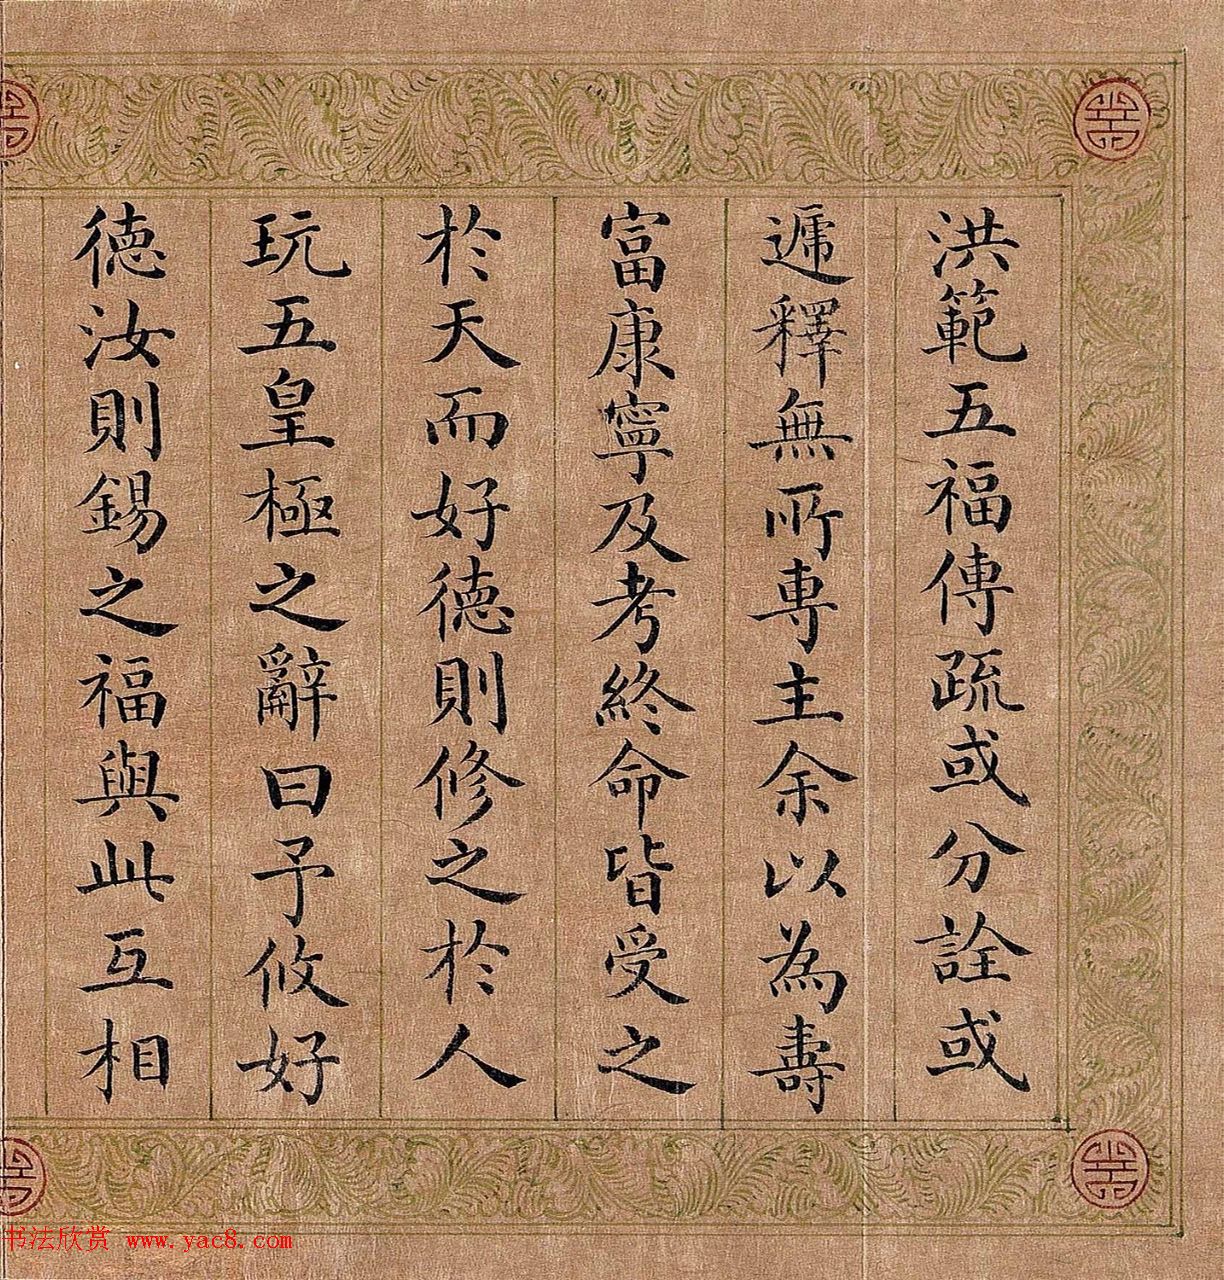 洪範五福傳疏或分詮或
遞釋無所專主余以為壽
富康寧及考終命皆受之
於天而好德則修之於人
玩五皇極之辭曰予攸好
德汝則錫之福與此互相
书法欣赏 www.yac8.com